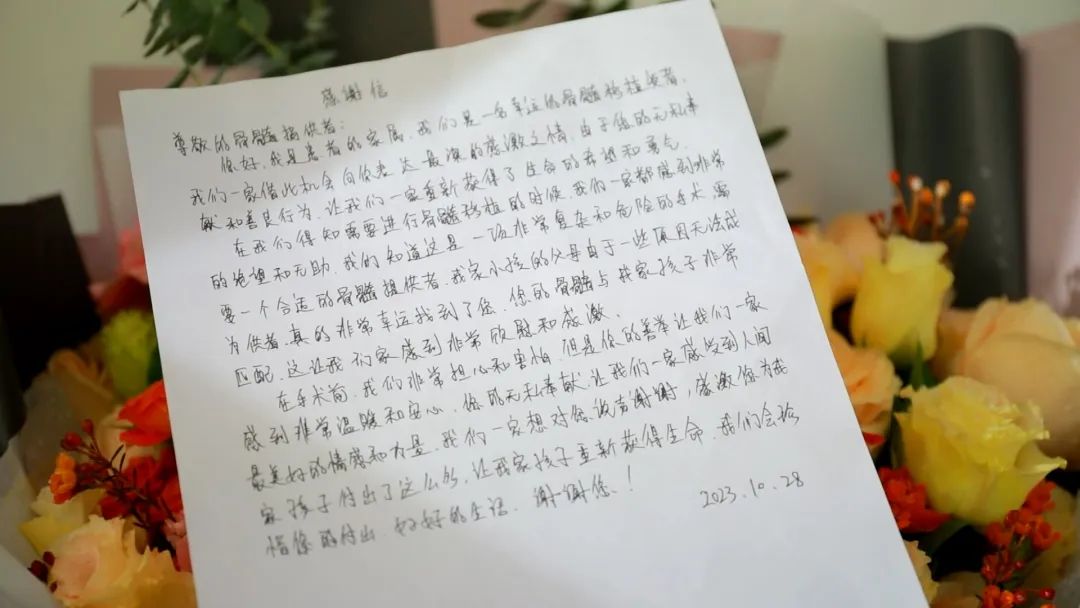 感谢信
尊敬的骨髓捐供者:
你好,我是患者的家属,我们是一名幸运的骨髓移植患者,
我们一家借此机会向你表达最深的感激之情,由于您的无私奉
献和善良行为,让我们一家重新获得了生命的希望和勇气。
在我们得知需要进行骨髓移植的时候,我们一家都感到非常
的绝望和无助,我们知道这是一项非常复杂和危险的手术,需
要一个合适的骨髓提供者,我家小孩的父母由于一些原因无法成
为供者,真的非常幸运找到了您,您的骨髓与我家孩子非常
匹配,这让我们家感到非常欣慰和感激。
在手术前,我们非常担心和害怕,但是你的善举让我们一家
感到非常温暖和安心,您的无私奉献,让我们一家感受到人间
最美好的情感和力量,我们一家想对您说声谢谢,感激您为我
家孩子付出了这么多,让我家孩子重新获得生命,我们会珍
惜您的付出,好好的生活,谢谢您!
2023.10.28